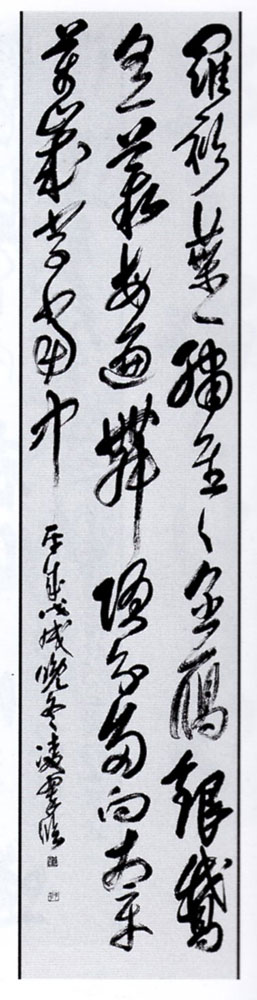 羅衫葉々繡重々金鳳銀鵝
各一叢每遍舞分兩向太平
萬歲字當中
戊戌晚冬凌